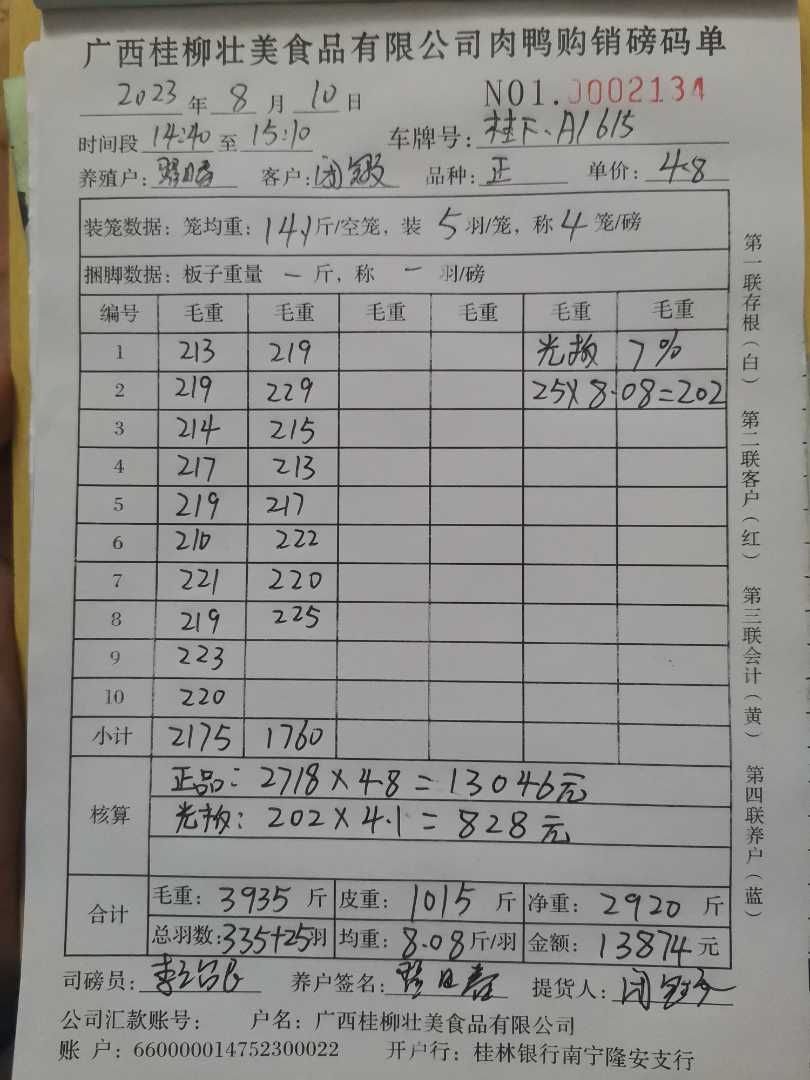 广西桂柳壮美食品有限公司肉鸭购销磅码单
2023年 8 月 10 日 NO1.0002134
时间段 14:40 至 15:10 车牌号: 桂F·A1615
养殖户: 客户: 闭 品种: 正 单价: 4.8
装笼数据: 笼均重: 14.1斤/空笼, 装 5 羽/笼, 称 4 笼/磅
捆脚数据: 板子重量 一 斤, 称 一 羽/磅
编号 毛重 毛重 毛重 毛重 毛重 毛重
1 213 219 光板 7%
2 219 229 25×8.08=202
3 214 215
4 217 213
5 219 217
6 210 222
7 221 220
8 219 225
9 223
10 220
小计 2175 1760
核算 正品: 2718×4.8=13046元
光板: 202×4.1=828元
合计 毛重: 3935 斤 皮重: 1015 斤 净重: 2920 斤
总羽数: 335+25羽 均重: 8.08斤/羽 金额: 13874元
司磅员: 养户签名: 提货人: 闭
公司汇款账号: 户名: 广西桂柳壮美食品有限公司
账 户: 660000014752300022 开户行: 桂林银行南宁隆安支行
第一联存根(白) 第二联客户(红) 第三联会计(黄) 第四联养户(蓝)